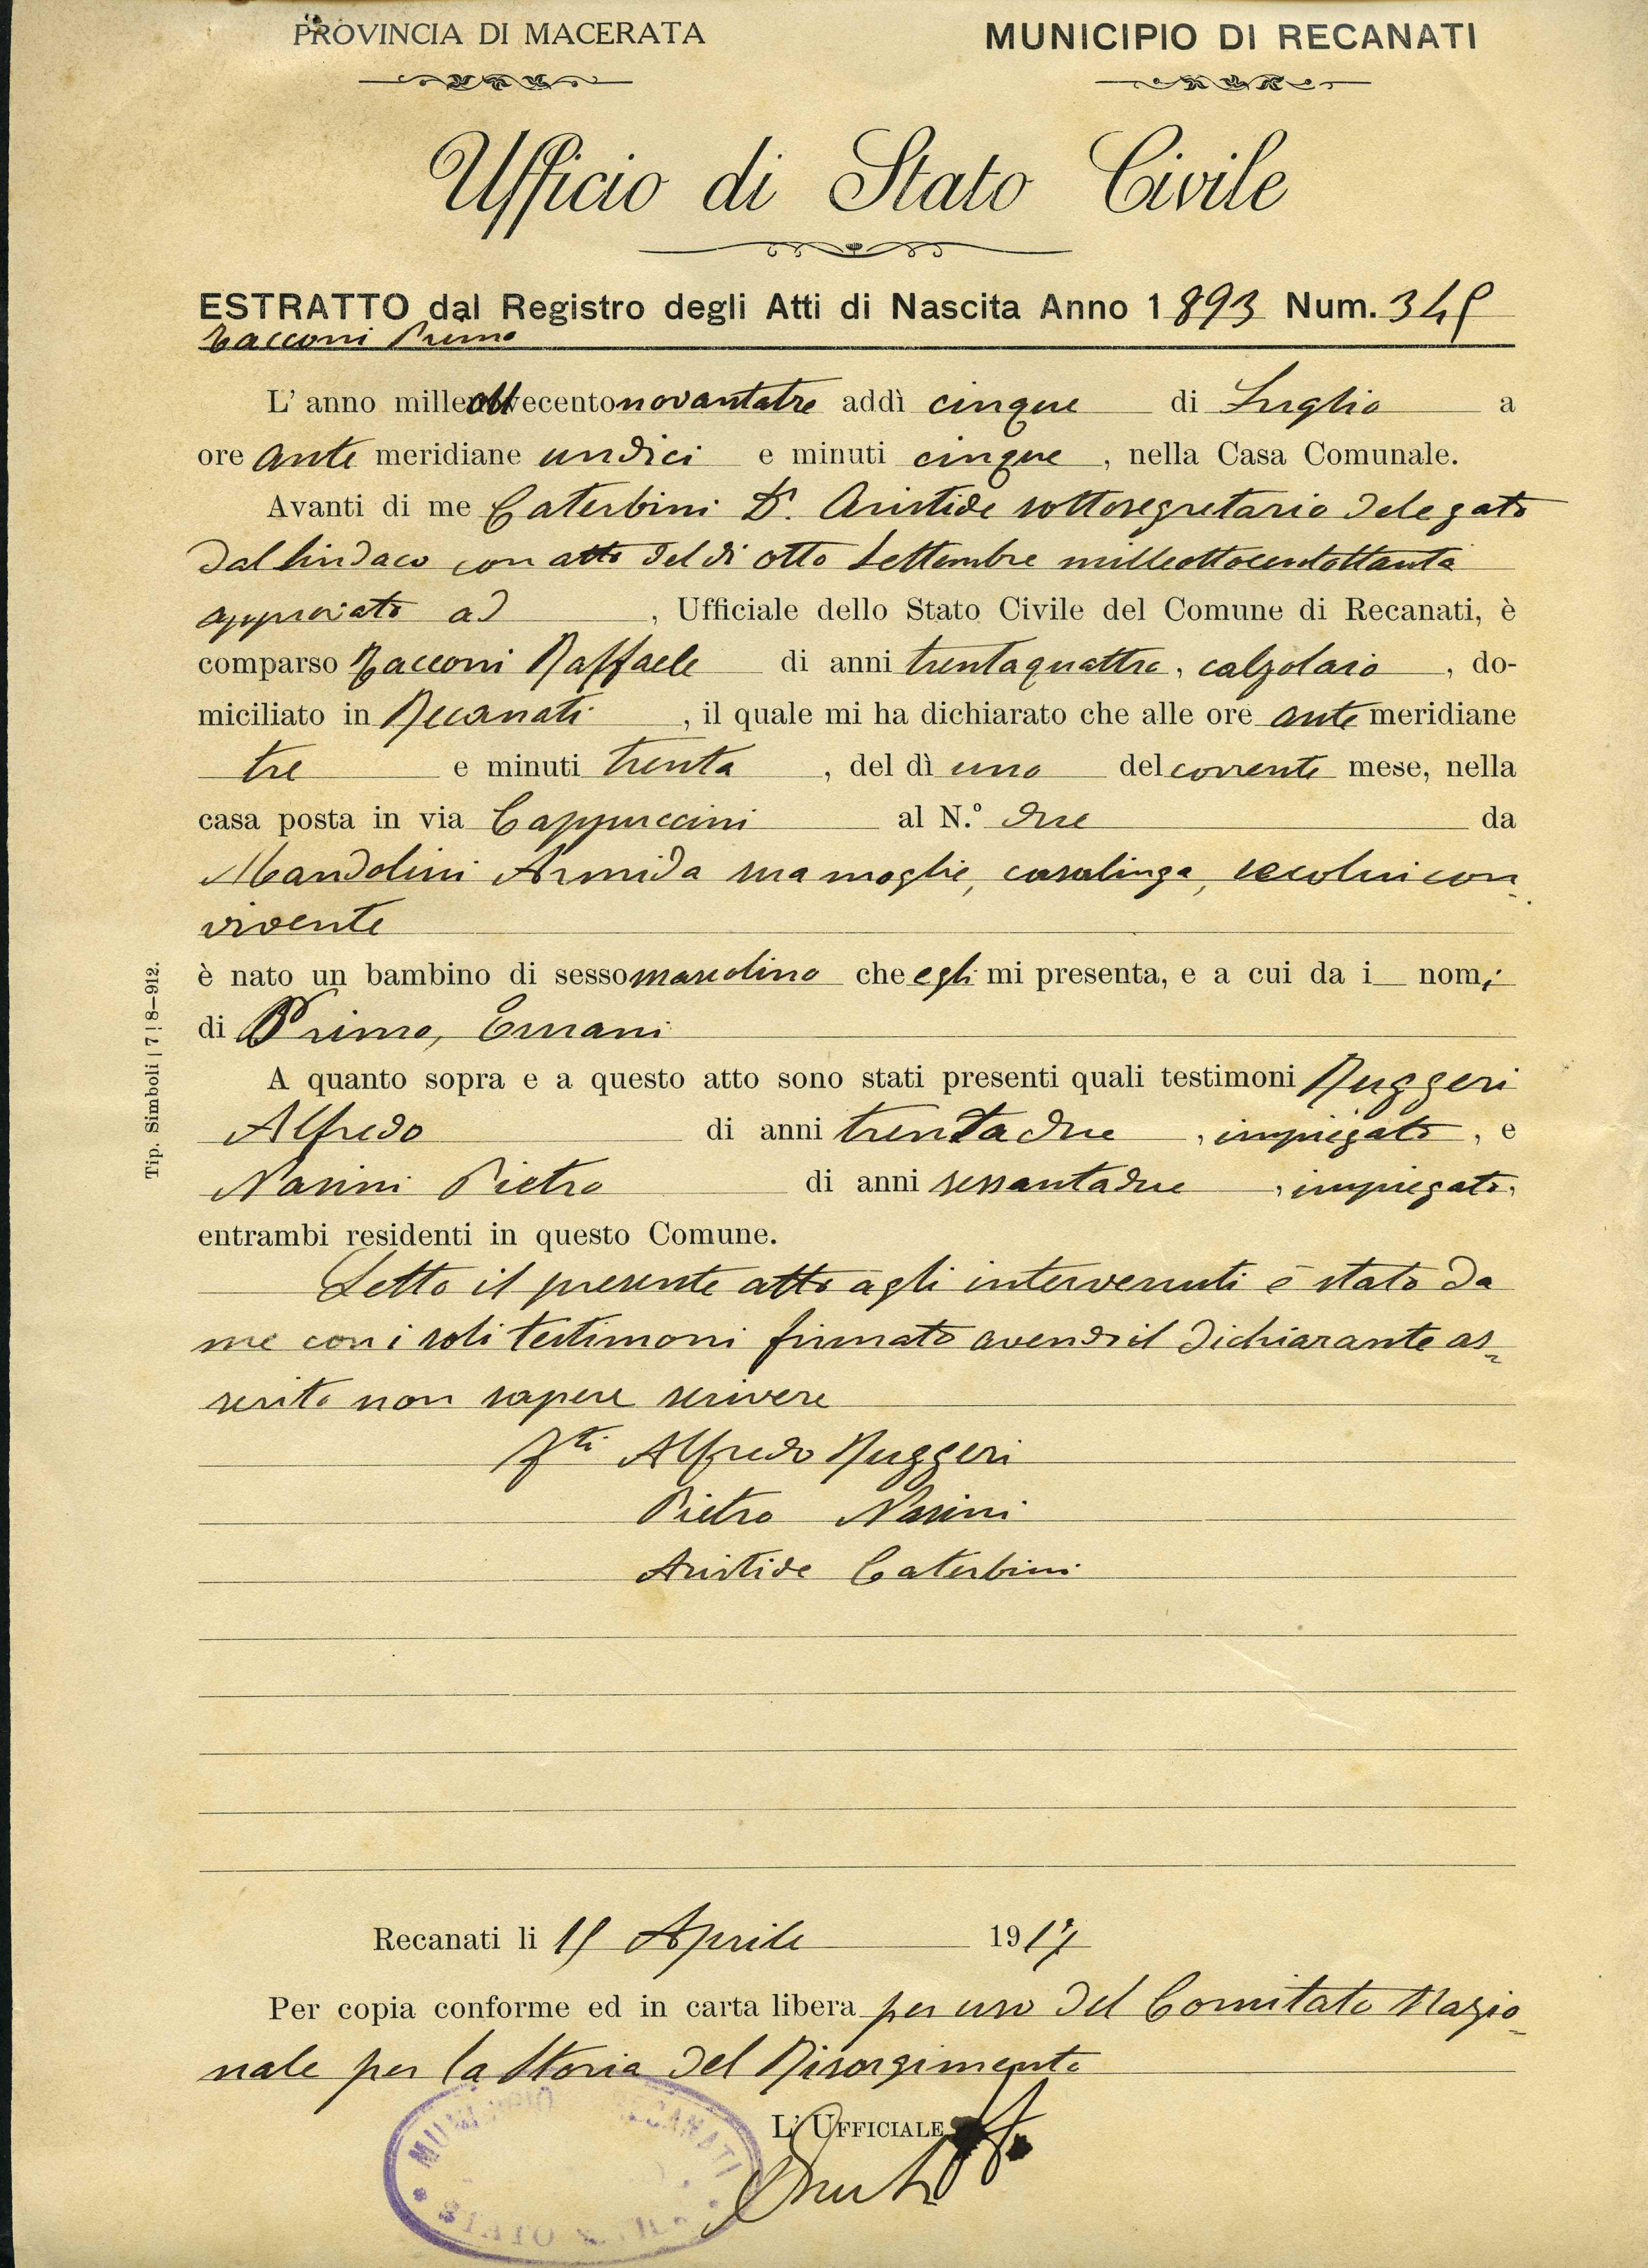 PROVINCIA DI MACERATA
MUNICIPIO DI RECANATI
Ufficio di Stato Civile
ESTRATTO dal Registro degli Atti di Nascita Anno 1893 Num. 345
Zacconi Primo
L' anno milleottocentonovantatre addì cinque di Luglio a
ore ante meridiane undici e minuti cinque, nella Casa Comunale.
Avanti di me Caterbini Dr. Aristide sottosegretario delegato
dal Sindaco con atto del di otto Settembre milleottocentottanta
approvato ad , Ufficiale dello Stato Civile del Comune di Recanati, è
comparso Zacconi Raffaele di anni trentaquattro, calzolaio, do-
miciliato in Recanati, il quale mi ha dichiarato che alle ore ante meridiane
tre e minuti trenta, del dì uno del corrente mese, nella
casa posta in via Cappuccini al N.º due da
Mandolini Armida sua moglie, casalinga, secolui con
vivente
è nato un bambino di sesso mascolino che egli mi presenta, e a cui da i nomi
di Primo, Ernani
A quanto sopra e a questo atto sono stati presenti quali testimoni Ruggeri
Alfredo di anni trentadue, impiegato, e
Nasini Pietro di anni sessantadue, impiegato,
entrambi residenti in questo Comune.
Letto il presente atto agli intervenuti è stato da
me con i soli testimoni firmato avendo il dichiarante as-
serito non sapere scrivere
Fti Alfredo Ruggeri
Pietro Nasini
Aristide Caterbini
Recanati li 15 Aprile 1917
Per copia conforme ed in carta libera per uso del Comitato Nazio-
nale per la Storia del Risorgimento
L' UFFICIALE
MUNICIPIO RECANATI
STATO CIVILE
Tip. Simboli | 7 | 8-912.